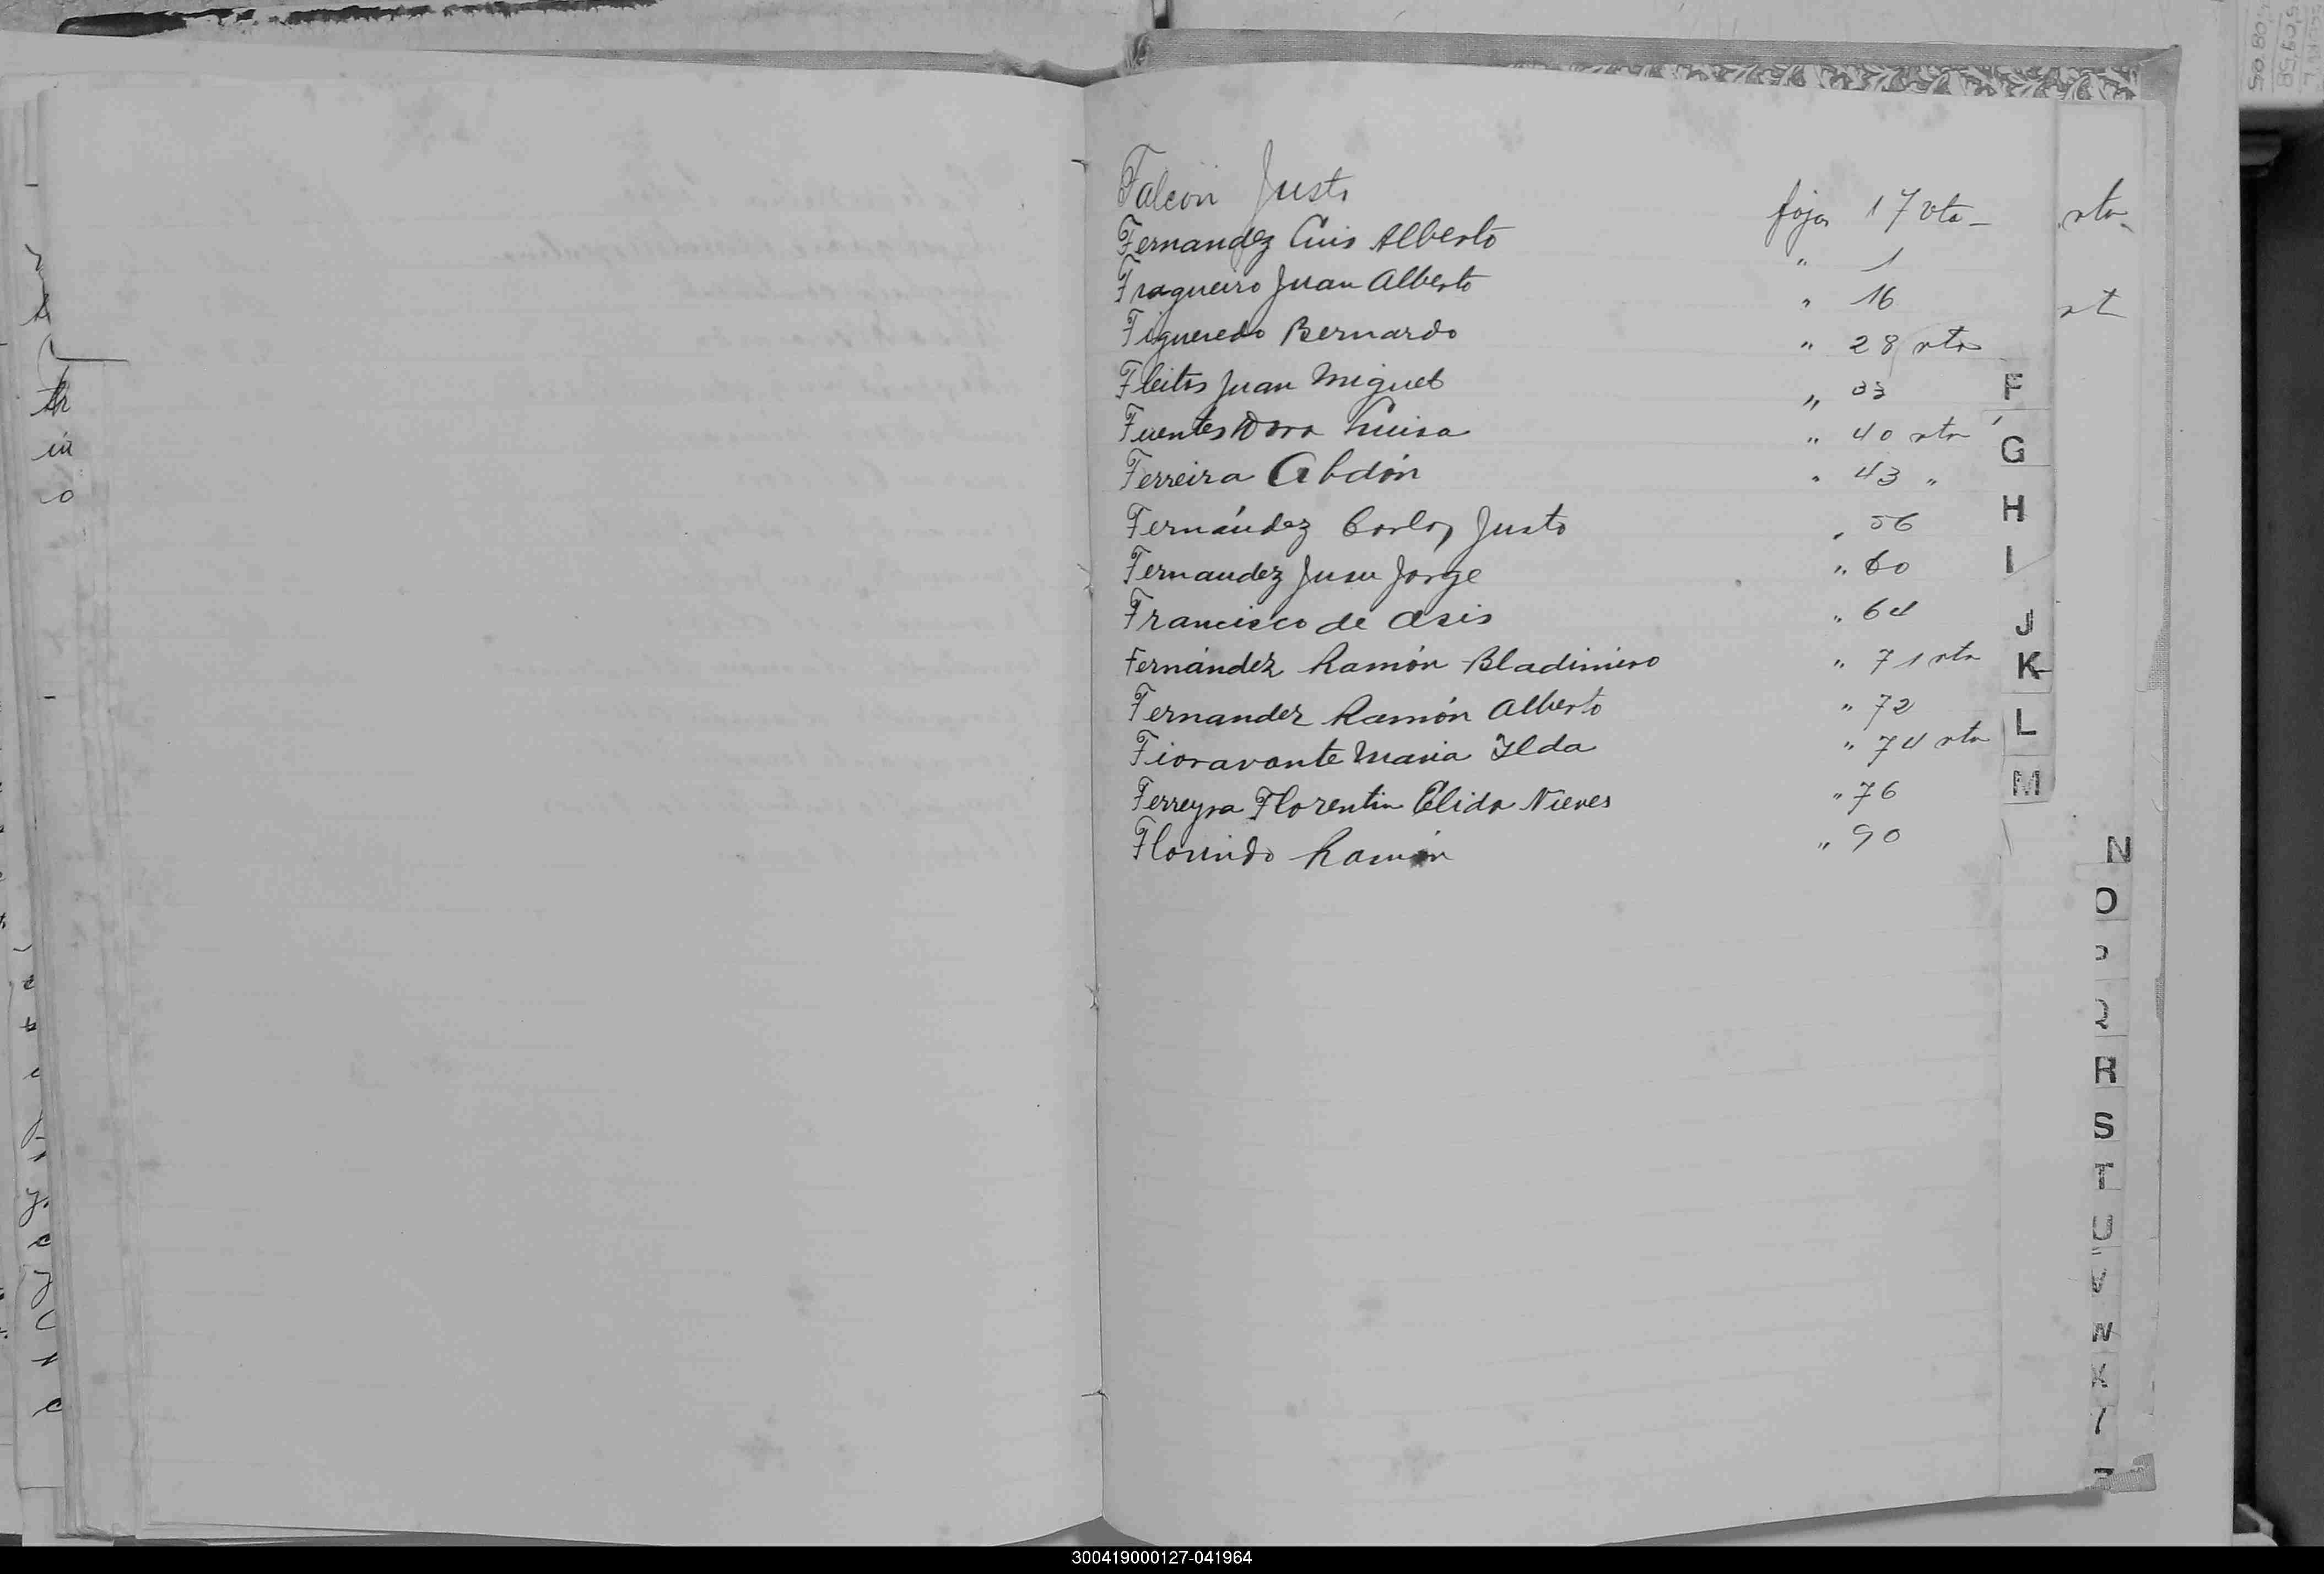 Falcon Justo foja 17 vta -
Fernandez Luis Alberto " 1
Fragueiro Juan Alberto " 16
Figueredo Bernardo " 28 vta
Fleitas Juan Miguel " 33
Fuentes Dora Luisa " 40 vta
Ferreira Abdón " 43 "
Fernández Carlos Justo " 56
Fernandez Juan Jorge " 60
Francisco de Asis " 64
Fernández Ramón Bladimiro " 71 vta
Fernandez Ramón Alberto " 72
Fioravante Maria Ilda " 74 vta
Ferreyra Florentin Elida Nieves " 76
Florindo Ramón " 90
vta
vt
F
G
H
I
J
K
L
M
N
O
P
Q
R
S
T
U
V
W
X
300419000127-041964